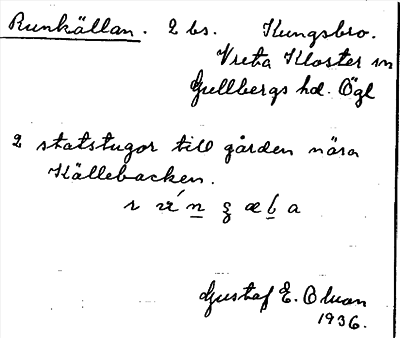 Runkällan. 2 bs. Kungsbro.
Vreta Kloster sn
Gullbergs hd. Ögl
2 statstugor till gården nära
Källebacken.
Gustaf E. Olvan
1936.